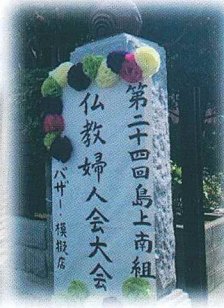 第二十四回島上南組
仏教婦人会大会
バザー・模擬店